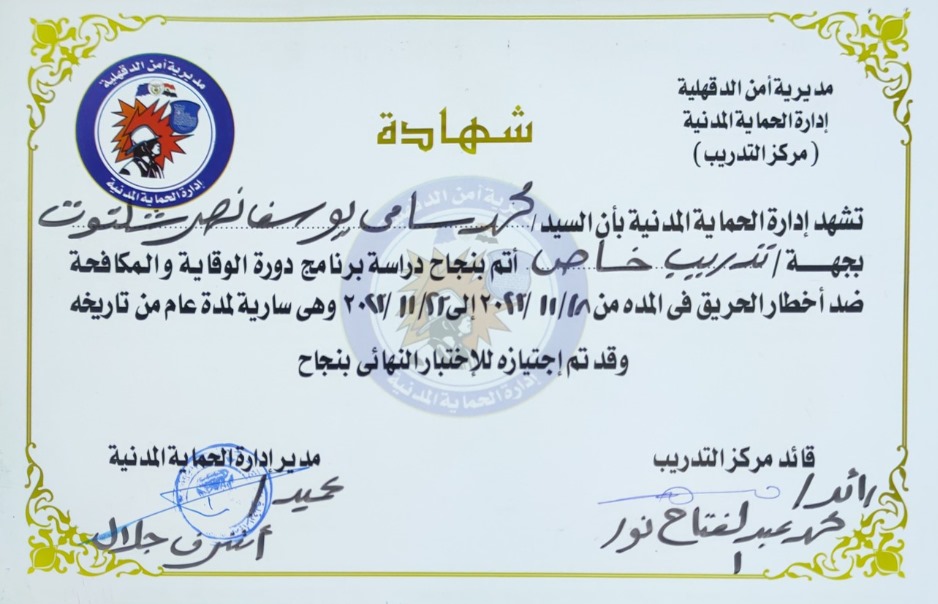 مديرية أمن الدقهلية
إدارة الحماية المدنية
(مركز التدريب)
مديرية أمن الدقهلية
إدارة الحماية المدنية
شهادة
تشهد إدارة الحماية المدنية بأن السيد / محمد سامى يوسف نصر شلتوت
بجهـــة / تدريب خاص أتم بنجاح دراسة برنامج دورة الوقاية والمكافحة
ضد أخطار الحريق فى المده من ١٨/ ١١ /٢٠٢٢ إلى ٢٢/ ١١ /٢٠٢٢ وهى سارية لمدة عام من تاريخه
وقد تم إجتيازه للإختبار النهائى بنجاح
قائد مركز التدريب
رائد /
محمد عبد الفتاح نور
مدير إدارة الحماية المدنية
عميد /
أشرف جلال